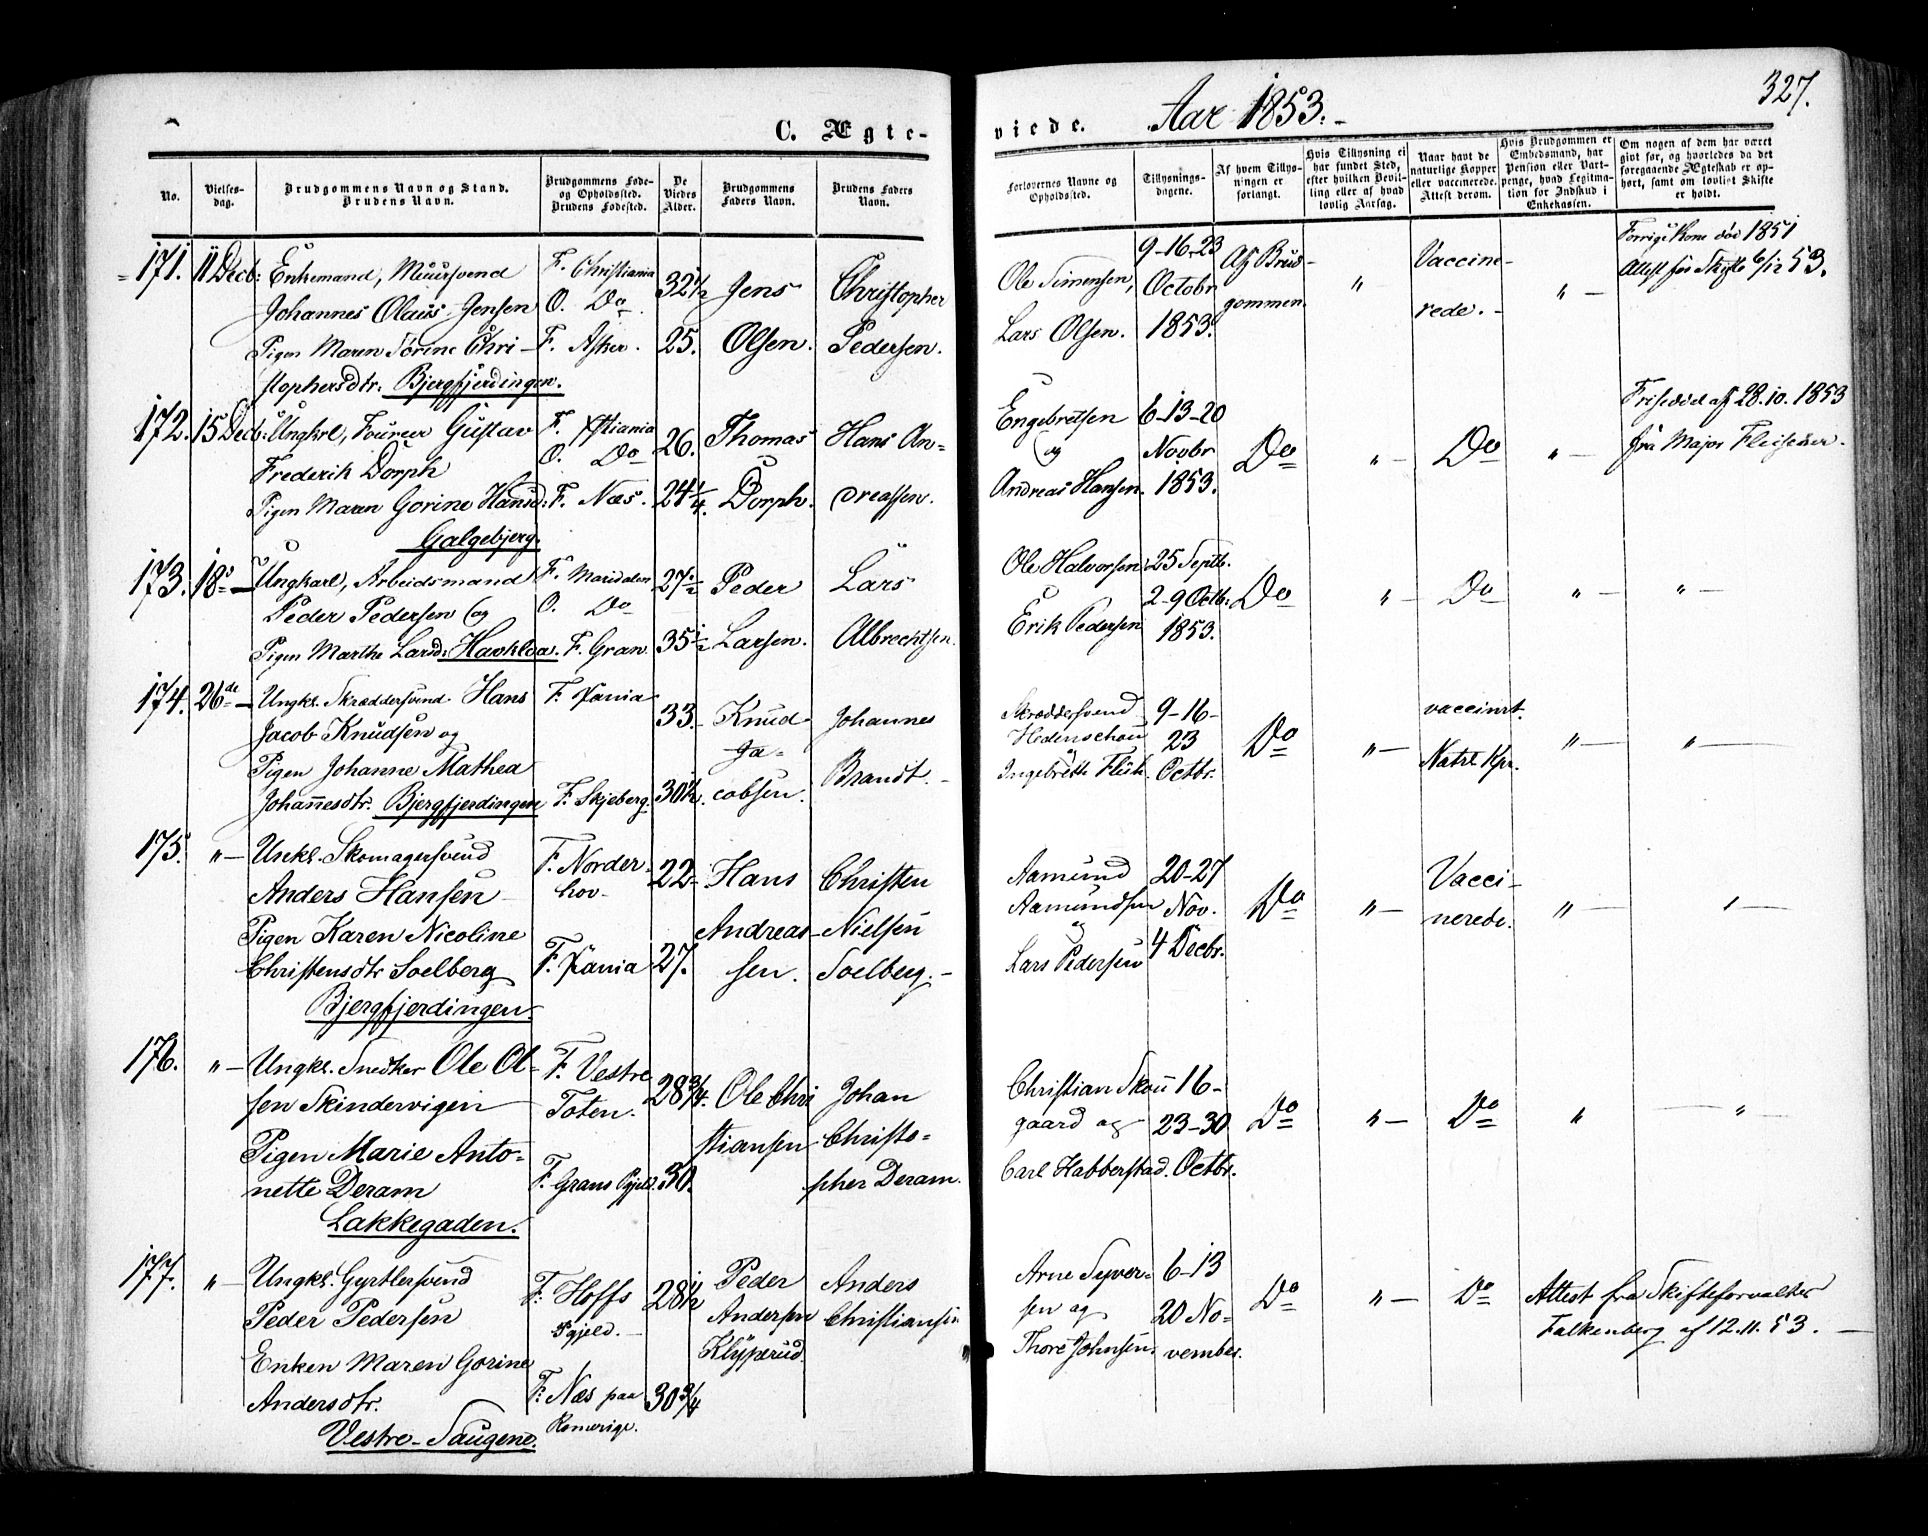 C. Ægte-
viede. Aar 1853.- 327.
No.
Vielses-
dag.
Brudgommens Navn og Stand.
Brudens Navn.
Brudgommens Føde-
og Opholdssted.
Brudens Fødested.
De
Viedes
Alder.
Brudgommens
Faders Navn.
Brudens Faders
Navn.
Forlovernes Navne og
Opholdssted.
Tillysnings-
dagene.
Af hvem Tillys-
ningen er
forlangt.
Hvis Tillysning ei
har fundet Sted,
efter hvilken Bevil-
ling eller af hvad
lovlig Aarsag.
Naar havt de
naturlige Kopper
eller vaccinerede.
Attest derom.
Hvis Brudgommen er
Embedsmand, har
Pension eller Vart-
penge, hvad Legitma-
tion for Indskud i
Enkekassen.
Om nogen af dem har været
givt før, og hvorledes da det
foregaaende Ægteskab er op-
hørt, samt om lovligt Skifte
er holdt.
171. 11 Decb: Enkemand, Muursvend
Johannes Olaus Jensen
Pigen Maren Sørine Chri-
stophersdtr: Bjergfjerdingen.
F. Christiania
O. Do
F. Asker.
32½
25.
Jens
Olsen.
Christopher
Pedersen.
Ole Simensen,
Lars Olsen.
9-16-23
Octobr
1853.
Af Brud-
gommen
"
Vaccine-
rede.-
" -
Forrige Kone død 1851
Attest for Skifte 6/12 53.
172. 15 Decb: Ungkrl, Fourer Gustav
Frederik Dorph
Pigen Maren Gorine Hansd:
Galgebjerg.
F. Xstiania
O. Do
F. Næs.
26.
24¼.
Thomas
Dorph.
Hans An-
dreassen.
Engebretsen
og
Andreas Hansen.
6-13-20
Novbr
1853.
Do
" -
Do
" -
af 28.10.1853
fra Major Fleischer.
173. 18 - Ungkarl, Arbeidsmand
Peder Pedersen og
Pigen Marthe Larsd: Havklda.
F. Maridalen
O. Do
F. Gran.
27½
35½
Peder
Larsen.
Lars
Albrechtsen.
Ole Halvorsen
Erik Pedersen
25 Septb.
2-9 Octb:
1853.
Do
" -
Do
" -
" -
174. 26de - Ungkl. Skræddersvend Hans
Jacob Knudsen og
Pigen Johanne Mathea
Johannesdtr. Bjergfjerdingen
F. Xania
F. Skjeberg.
33.
30½.
Knud
Ja-
cobsen.
Johannes
Brandt. -
Skræddersvend
og
9-16-
23
Octbr.
Do
" -
vaccinrt.
Natrl Kpr.
" -
" -
175. " - Ungkl. Skomagersvend
Anders Hansen
Pigen Karen Nicoline
Christensdtr Soelberg
Bjergfjerdingen.
F. Norder-
hov-
F. Xania
22-
27.
Hans
Andreas-
sen.
Christen
Nielsen
Soelberg.-
Aamund
Aamundsen
og
Lars Pedersen
20-27
Nov.
4 Decbr.
Do
" -
Vacci-
nerede.
" -
" -
176. " - Ungkl. Snedker Ole Ol-
sen Skindervigen
Pigen Marie Anto-
nette Deram
Lakkegaden.
F. Vestre
Toten.
F. Grans Pgjeld.
28¾.
30.
Ole Chri
stiansen
Johan
Christo-
pher Deram.
Christian Skou
gaard og
Carl Habberstad.
16-
23-30
Octbr.
Do
" -
Do
"
"
177. " - Ungkl. Gyrtlersvend
Peder Pedersen
Enken Maren Gorine
Andersdtr.
Vestre-Saugene.
F. Hoffs
Pgjeld. -
F: Næs paa
Romerige.
28½
30¾
Peder
Andersen
Klyperud.
Anders
Christiansen
Arne Syver-
sen og
Thore Johnsen.
6-13
20 No-
vember.
Do
" -
Do
Attest fra Skifteforvalter
Falkenberg af 12.11.53. -